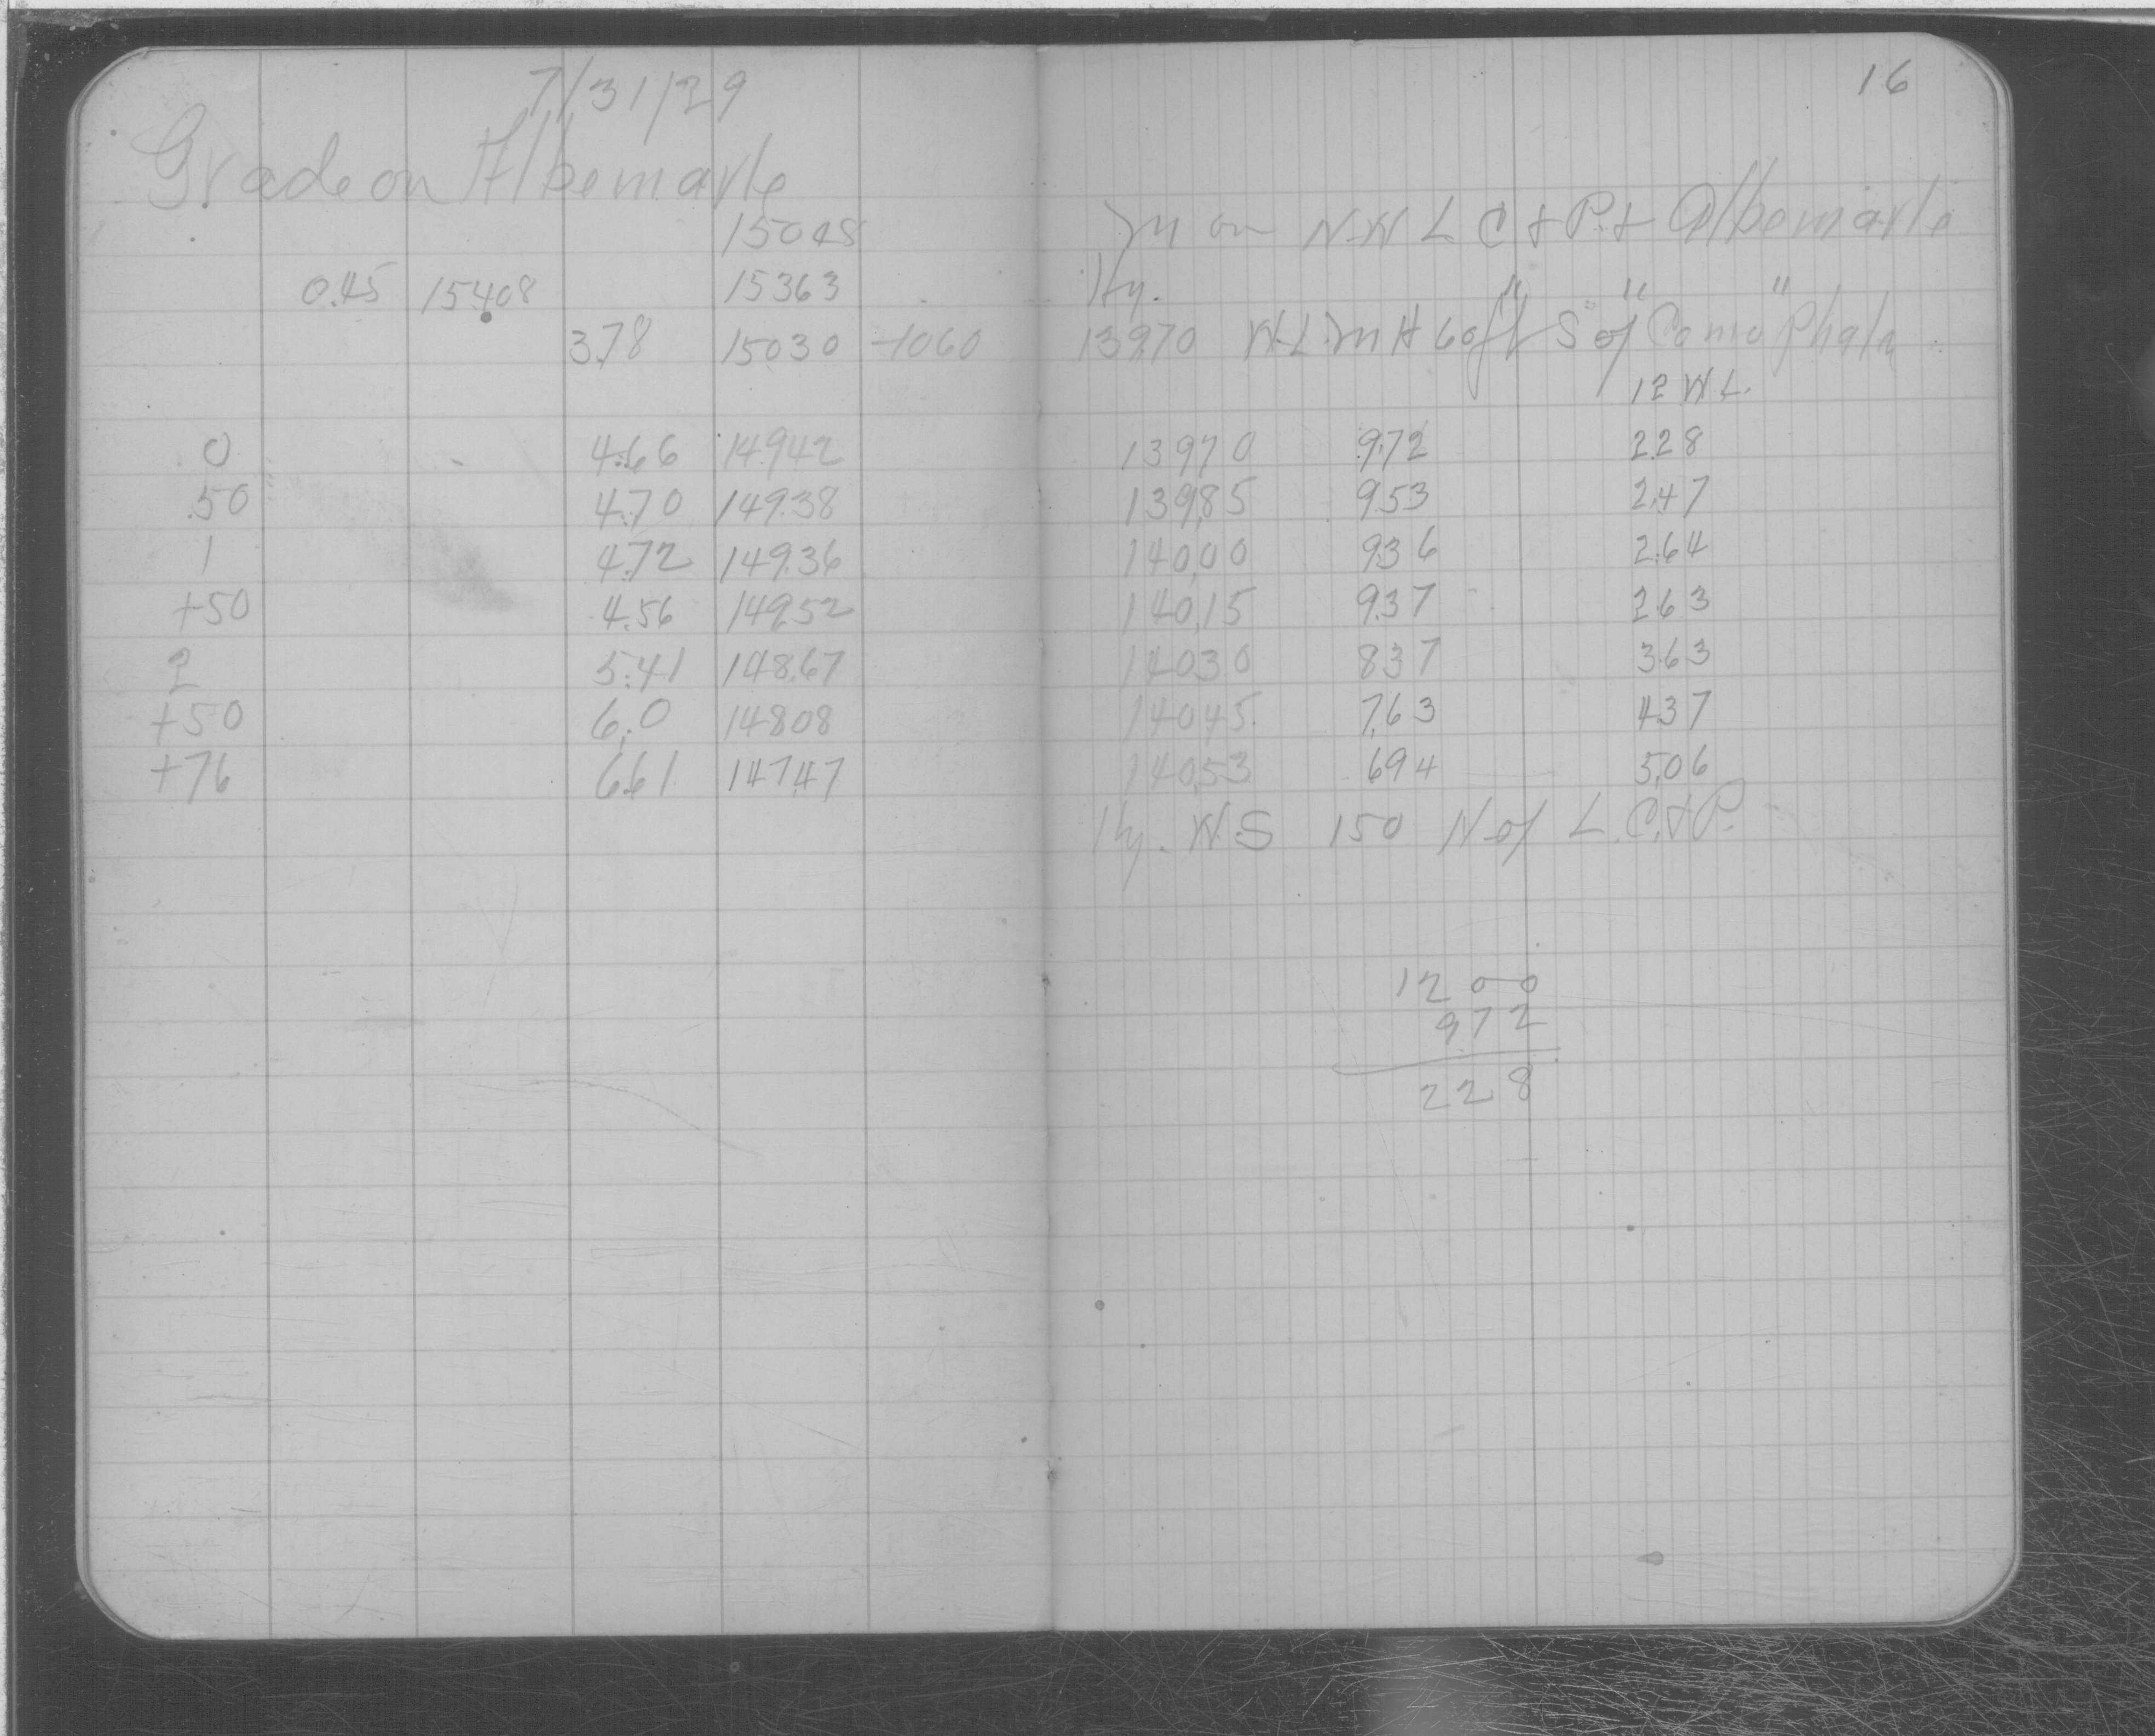 16
7/31/29
Grade on Albemarle
15048 M on N-W L C & P. & Albemarle
0.45 15408 15363 " " "
3.78 15030 -1060 13970 W.L. M H 60 ft S of Como
12 W L.
0 4.66 149.42 139.70 9.72 2.28
50 4.70 149.38 139.85 9.53 2.47
1 4.72 149.36 140.00 9.36 2.64
+50 4.56 149.52 140.15 9.37 2.63
2 5.41 148.67 140.30 8.37 3.63
+50 6.0 148.08 140.45 7.63 4.37
+76 6.61 147.47 140.53 6.94 5.06
W.S 150 N of L.C.& P.
1200
972
228